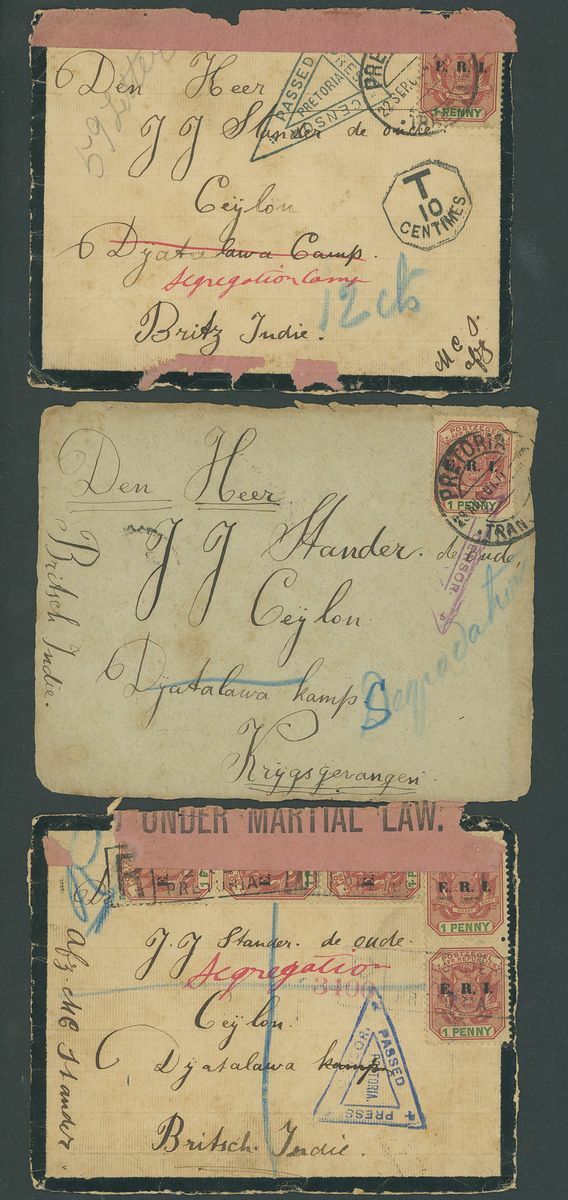 59 Letter
Den Heer
J J Stander de oude
Ceÿlon
Dÿatalawa Camp.
Segregation Camp
Britz Indie.
12 cts
M C S.
afz
PASSED
PRETORIA
CENSOR
PRE
22 SEP
TRAN
E. R. I.
1 PENNY
T
10
CENTIMES
Den Heer
J J Stander. de oude,
Ceÿlon
Dÿatalawa kamp S
Krÿgsgevangen.
Britsch Indie.
PRETORIA
TRAN
POSTZEGEL
R. I.
1 PENNY
UNDER MARTIAL LAW.
J. J. Stander. de oude.
Segregation
Ceÿlon.
Dÿatalawa kamp
Britsch. Indie.
Afz. M C Stander.
PASSED
PRESS
CENSOR.
PRETORIA.
E. R. I.
1 PENNY
E. R. I.
1 PENNY